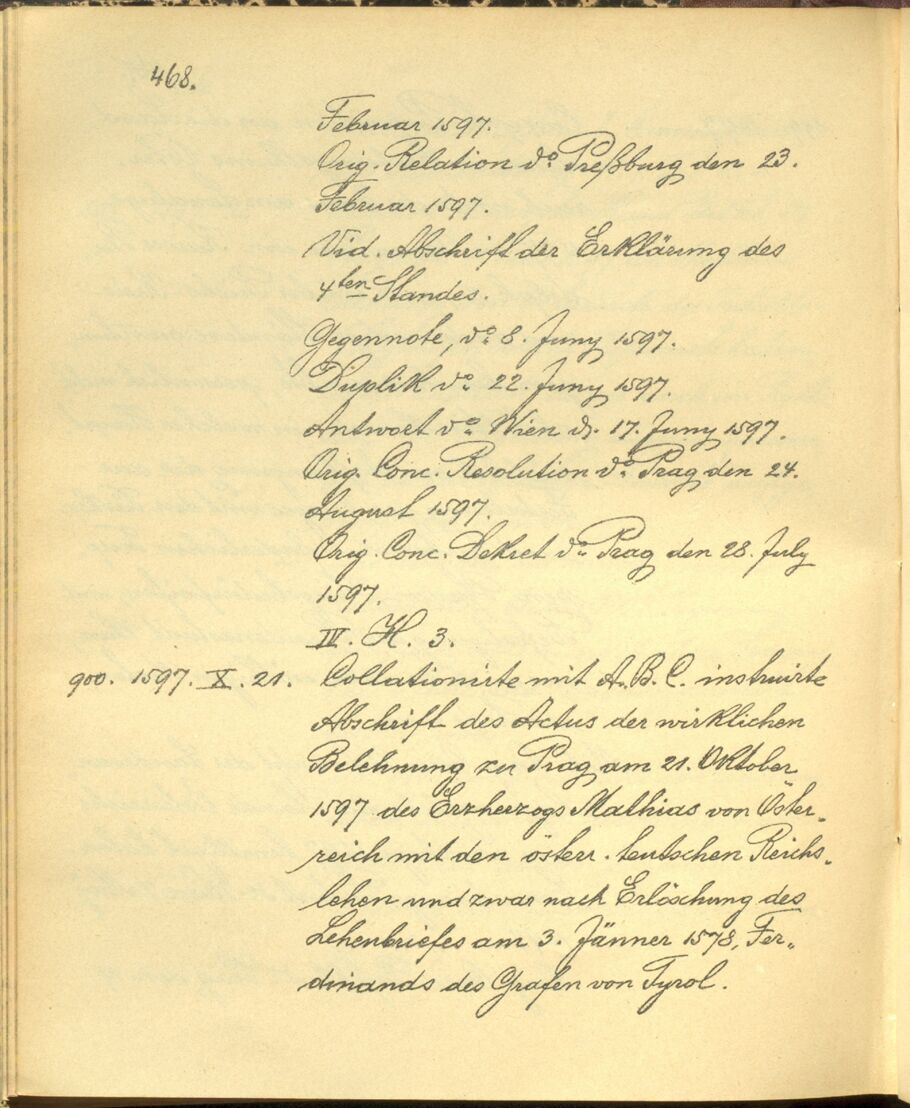 468.
Februar 1597.
Orig. Relation do. Preßburg den 23.
Februar 1597.
Vid. Abschrift der Erklärung des
4ten Standes.
Gegennote, do. 8. Juny 1597.
Duplik do. 22. Juny 1597.
Antwort do. Wien d. 17. Juny 1597.
Orig. Conc. Resolution do. Prag den 24.
August 1597.
Orig. Conc. Dekret do. Prag den 28. July
1597.
IV. H. 3.
900. 1597. X. 21. Collationirte mit A. B. C. instruirte
Abschrift des Actus der wirklichen
Belehnung zu Prag am 21. Oktober
1597 des Erzherzogs Mathias von Öster-
reich mit den österr. teutschen Reichs-
lehen und zwar nach Erlöschung des
Lehenbriefes am 3. Jänner 1578, Fer-
dinands des Grafen von Tyrol.